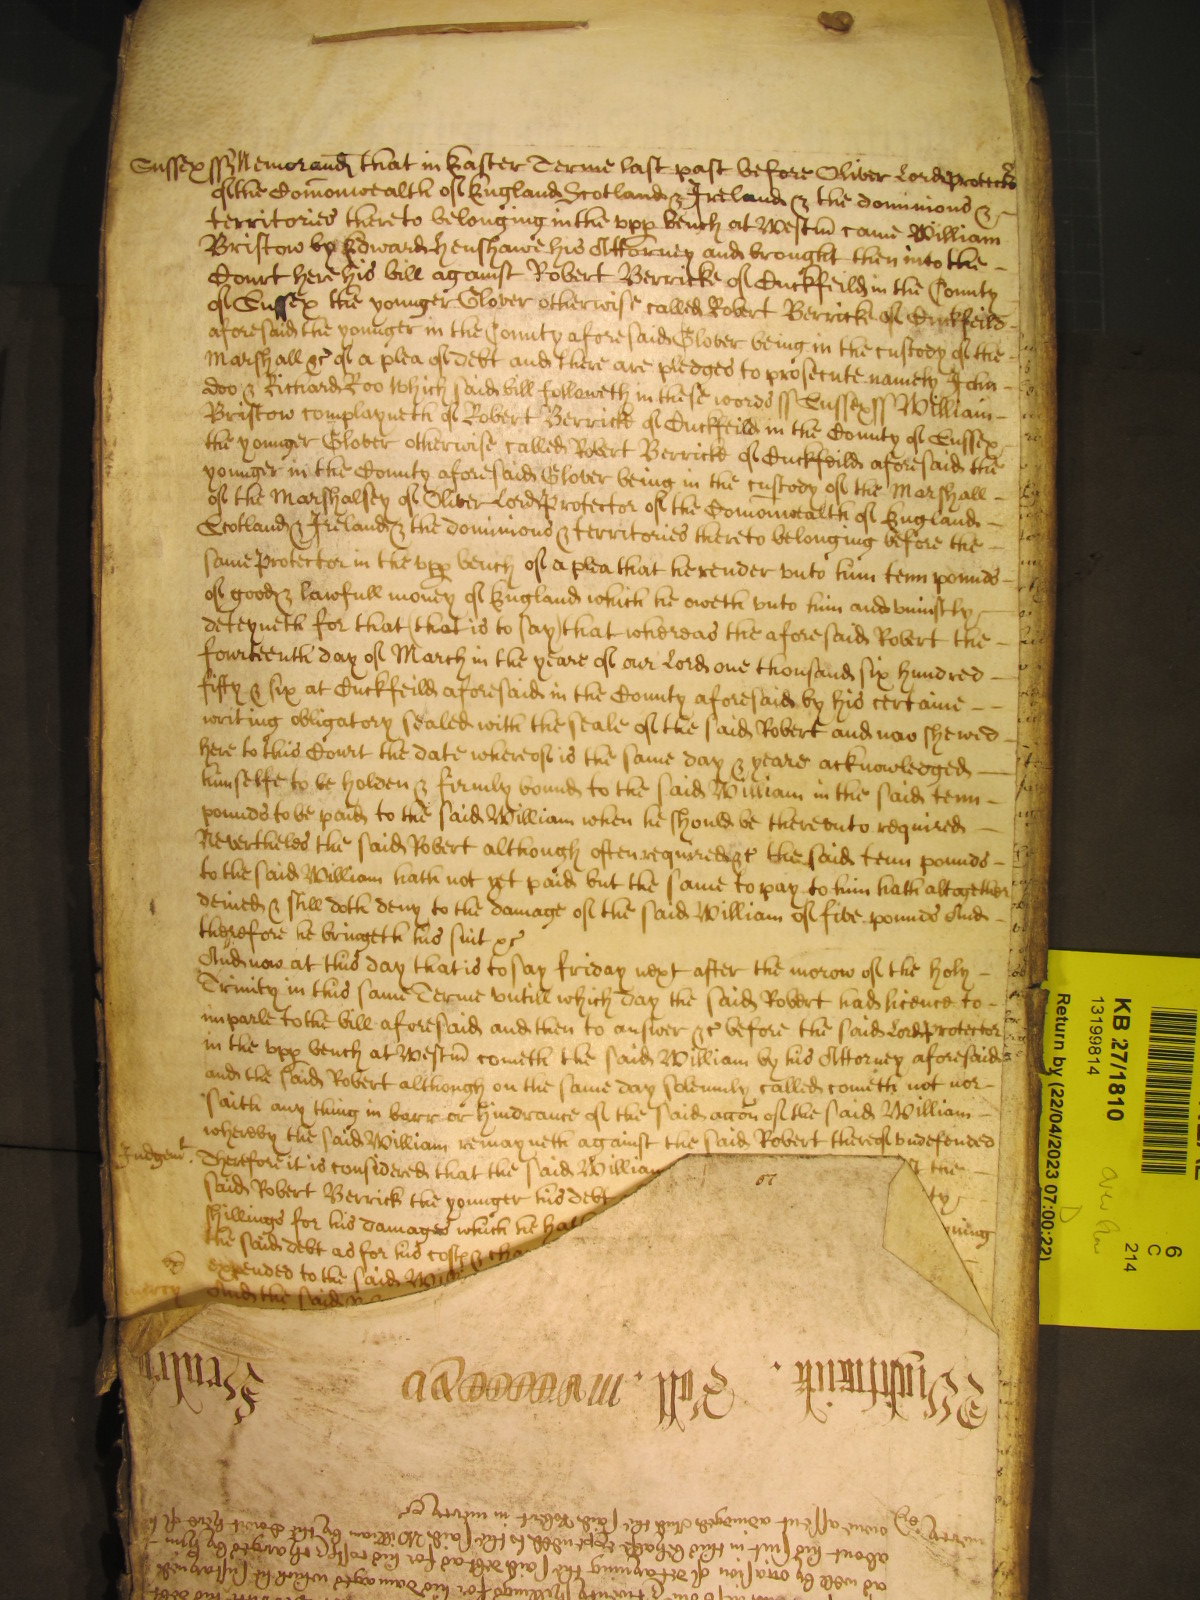 Sussex ss Memorand that in Easter Terme last past before Oliver Lord Protector
of the Comonwealth of England Scotland & Ireland & the dominions &
territories there to belonging in the upp bench at Westm came William
Bristow by Edward Henshawe his Attorney and brought then into the
Court here his bill against Robert Berricke of Cuckfeild in the County
of Sussex the younger Glover otherwise called Robert Berrick of Cuckfeild
aforesaid the younger in the County aforesaid Glover being in the custody of the
Marshall &c of a plea of debt and there are pledges to prosecute namely John
doo & Richard Roo Which said bill followeth in these words ss Sussex ss William
Bristow complayneth of Robert Berrick of Cuckfeild in the County of Sussex
the younger Glover otherwise called Robert Berrick of Cuckfeild aforesaid the
younger in the County aforesaid Glover being in the custody of the Marshall
of the Marshalsey of Oliver Lord Protector of the Comonwealth of England
Scotland & Ireland & the dominions & territories thereto belonging before the
same Protector in the upp bench of a plea that he render unto him tenn pounds
of good & lawfull money of England which he oweth unto him and uniustly
deteyneth for that (that is to say) that whereas the aforesaid Robert the
fourteenth day of March in the yeare of our Lord one thousand six hundred
fifty & six at Cuckfeild aforesaid in the County aforesaid by his certaine
writing obligatory sealed with the seale of the said Robert and now shewed
here to this Court the date whereof is the same day & yeare acknowledged
himselfe to be holden & firmly bound to the said William in the said tenn
pounds to be paid to the said William when he should be thereunto required
Neverthelesse the said Robert although often required &c the said tenn pounds
to the said William hath not yet paid but the same to pay to him hath altogether
denied & still doth deny to the damage of the said William of five pounds And
therefore he bringeth his suit &c
And now at this day that is to say friday next after the morow of the holy
Trinity in this same Terme untill which day the said Robert had licence to
imparle to the bill aforesaid and then to answer &c before the said Lord Protector
in the upp bench at Westm cometh the said William by his Attorney aforesaid
and the said Robert although on the same day solemnly called cometh not nor
saith any thing in barr or hindrance of the said accon of the said William
whereby the said William remayneth against the said Robert thereof undefended
Judgemt. Therefore it is considered that the said William the
said Robert Berrick the younger his debt ty
shillings for his damages which he hath
the said debt as for his costs & cha
expended to the said Will
mercy And the said
67
Wightwick. Roll
KB 27/1810
13199814
Return by (22/04/2023 07:00:22)
6
C
214
D
mercy
about his suit in this behalfe expended to the said William by the Court here of
owne assent adiudged And the said Robert in mercy &c